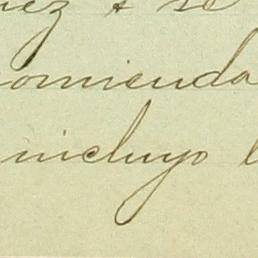 ez & se
omienda
incluyo l